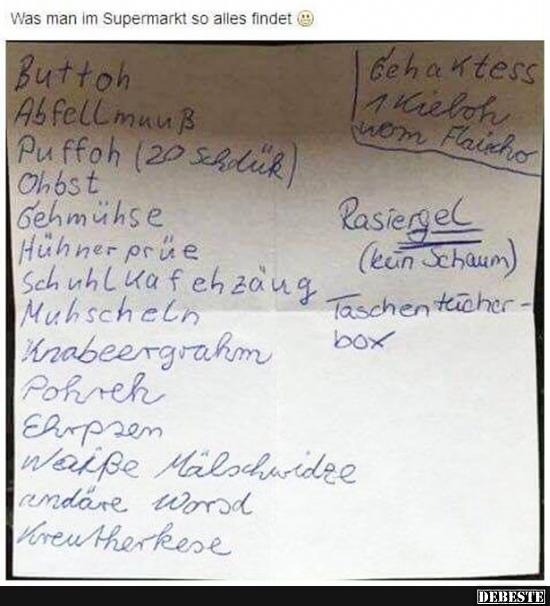 Was man im Supermarkt so alles findet
Buttoh
Abfellmuuß
Puffoh (20 Schdük)
Ohbst
Gehmühse
Hühnerprüe
Schuhlkafehzäug
Muhscheln
Knabeergrahm
Pohreh
Ehrpsen
Waiße Mälschwidze
andäre Worsd
Kreutherkese
Gehaktess
1 Kieloh
vom Flaischo
Rasiergel
(kein Schaum)
Taschentücher-
box
DEBESTE